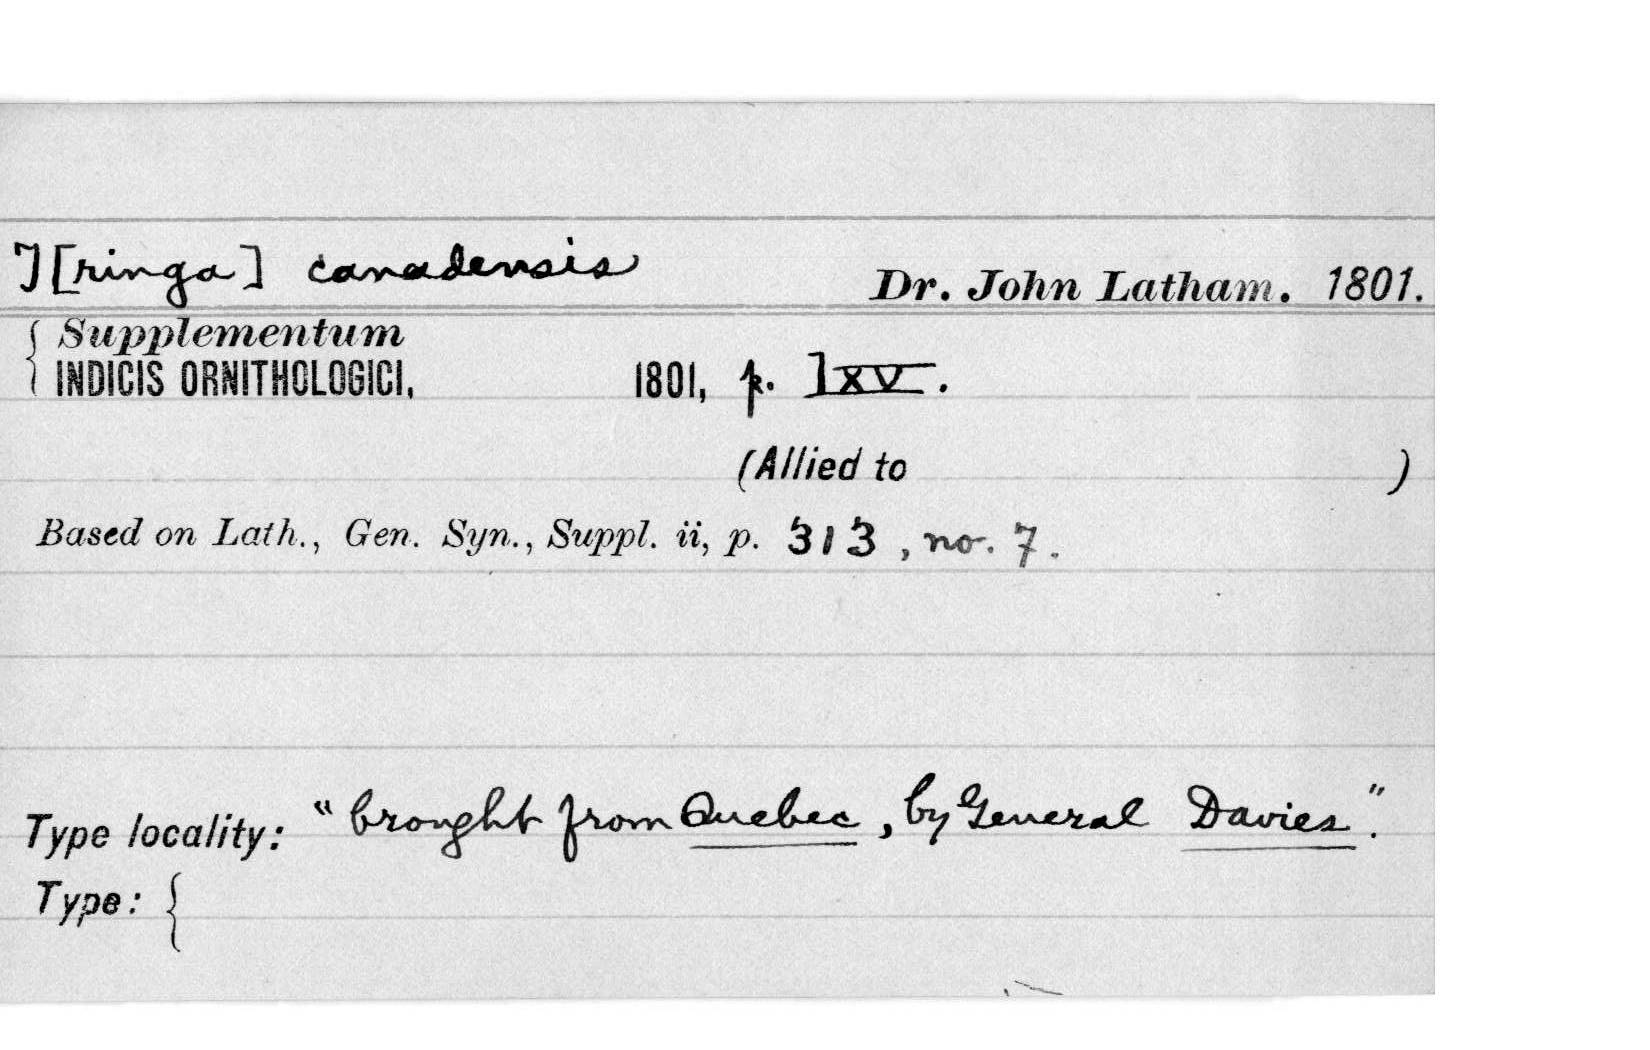 T[ringa] canadensis Dr. John Latham. 1801.
Supplementum
INDICIS ORNITHOLOGICI, 1801, p. lxv.
(Allied to )
Based on Lath., Gen. Syn., Suppl. ii, p. 313, no. 7.
Type locality: "brought from Quebec, by General Davies".
Type: {